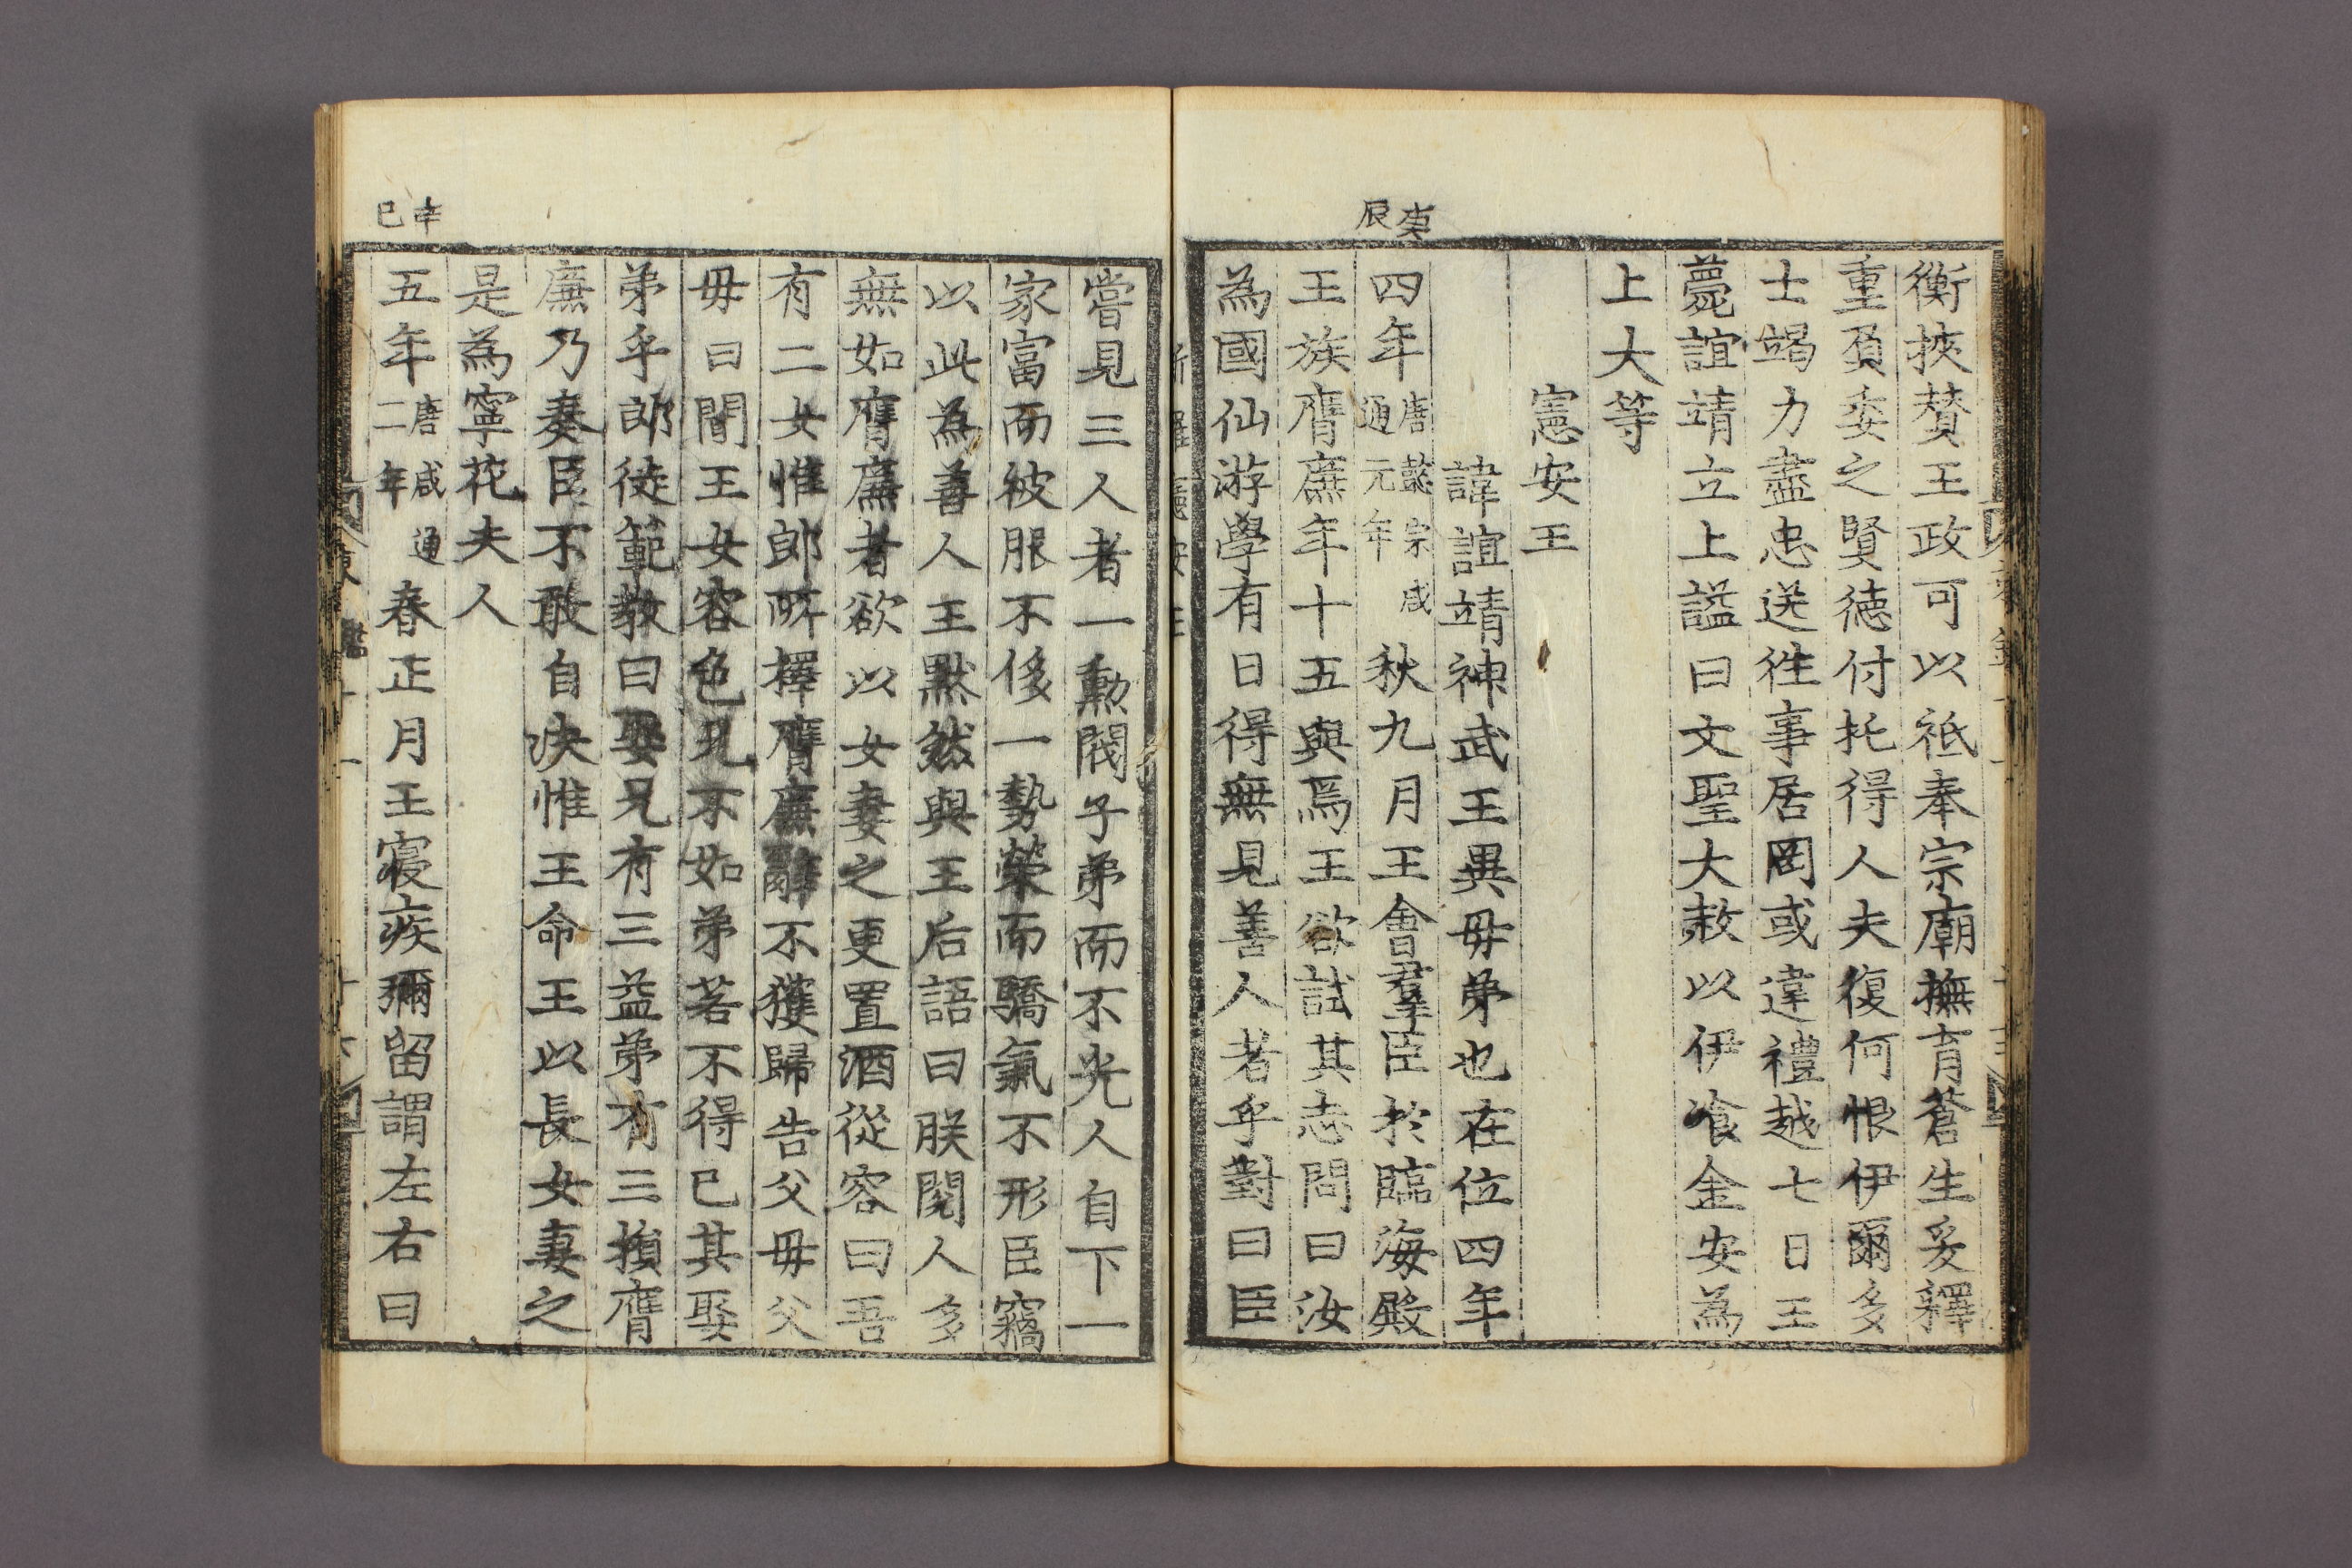 衡挾賛王政可以祇奉宗廟撫育蒼生爰釋
重負委之賢徳付托得人夫復何恨伊爾多
士竭力盡忠送徃事居罔或違禮越七日王
薨誼靖立上諡曰文聖大赦以伊飡金安為
上大等
憲安王
諱誼靖神武王異毋弟也在位四年
庚辰
四年唐懿宗咸通元年秋九月王會羣臣於臨海殿
王族膺廉年十五與焉王欲試其志問曰汝
為國仙游學有日得無見善人者乎對曰臣
嘗見三人者一勳閥子弟而不光人自下一
家富而被服不侈一勢榮而驕氣不形臣竊
以此為善人王黙然與王后語曰朕閱人多
無如膺廉者欲以女妻之更置酒從容曰吾
有二女惟郎所擇膺廉辭不獲歸告父毋父
毋曰聞王女容色兄不如弟若不得已其娶
弟乎郎徒範教曰娶兄有三益弟有三損膺
廉乃奏臣不敢自决惟王命王以長女妻之
是為寧花夫人
辛巳
五年唐咸通二年春正月王寢疾彌留謂左右曰